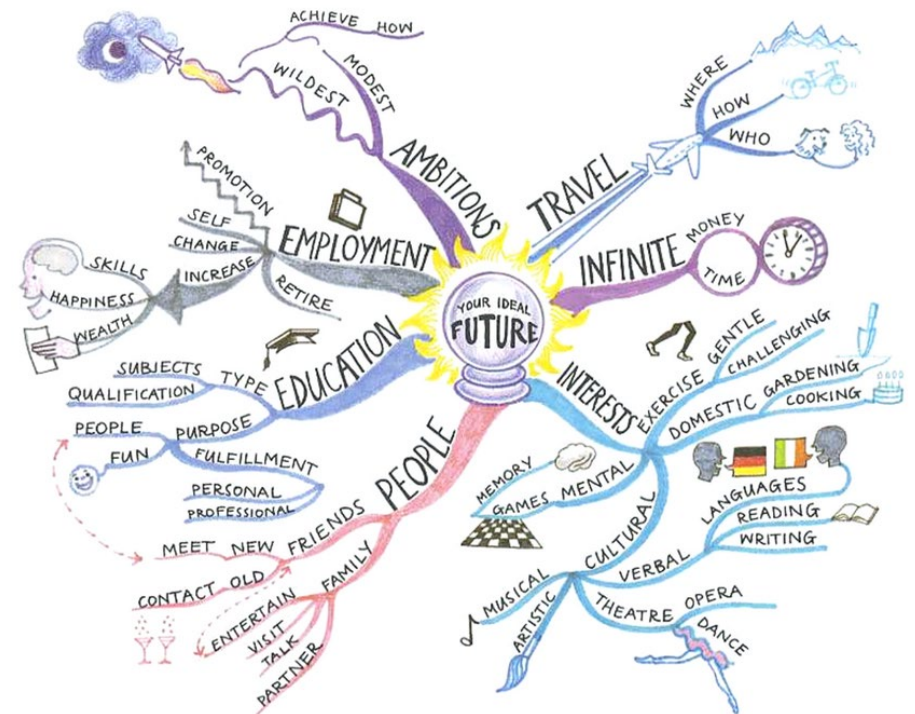 YOUR IDEAL
FUTURE
AMBITIONS
MODEST
WILDEST
ACHIEVE HOW
TRAVEL
WHERE
HOW
WHO
INFINITE
MONEY
TIME
INTERESTS
EXERCISE
GENTLE
CHALLENGING
DOMESTIC
GARDENING
COOKING
MENTAL
MEMORY
GAMES
CULTURAL
VERBAL
LANGUAGES
READING
WRITING
THEATRE
OPERA
DANCE
ARTISTIC
MUSICAL
PEOPLE
FRIENDS
NEW
MEET
OLD
CONTACT
FAMILY
ENTERTAIN
VISIT
TALK
PARTNER
EDUCATION
TYPE
SUBJECTS
QUALIFICATION
PURPOSE
PEOPLE
FUN
FULFILLMENT
PERSONAL
PROFESSIONAL
EMPLOYMENT
PROMOTION
SELF
CHANGE
INCREASE
SKILLS
HAPPINESS
WEALTH
RETIRE